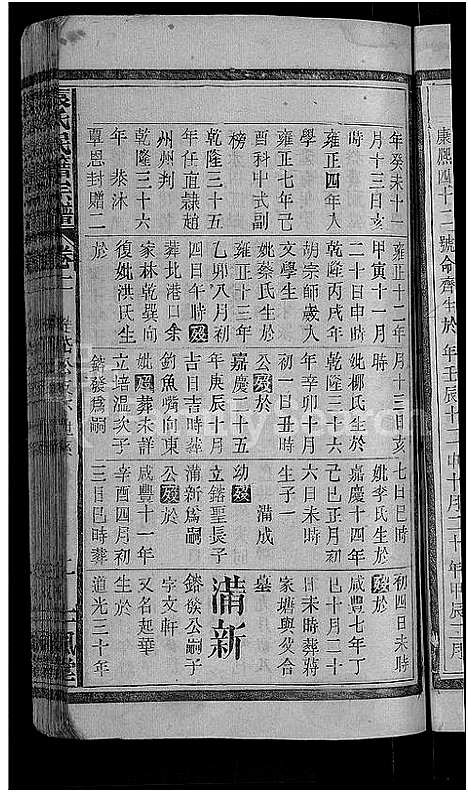 康熙四十二
號命齊生於
年壬辰十二
年甲辰二月
年癸未十一
月十三日亥
時
雍正四年入
學
雍正七年己
酉科中式副
榜
乾隆三十五
年任直隸趙
州州判
乾隆三十六
年 恭沐
覃恩封贈二
雍正十二年
甲寅十一月
二十日申時
乾隆丙戌年
胡宗師歲入
文學生
妣蔡氏生於
雍正十三年
乙卯八月初
四日午時歿
葬北港口余
家林乾巽向
復妣洪氏生
於
月十三日亥
時
妣柳氏生於
乾隆三十六
年辛卯十月
初一日丑時
公歿於
嘉慶二十五
年庚辰十月
吉日吉時葬
釣魚嘴向東
妣歿葬未詳
立培溫次子
鍇發爲嗣
七日巳時
妣李氏生於
嘉慶十四年
己巳正月初
六日未時
生子一
滿成
幼歿
立鍇聖長子
滿新爲嗣
公歿於
咸豐十一年
辛酉四月初
三日巳時葬
初四日未時
歿於
咸豐七年丁
巳十月二十
日未時葬蔣
家塘與合
墓
滿新
鍇公嗣子
字文軒
又名起華
生於
道光三十年